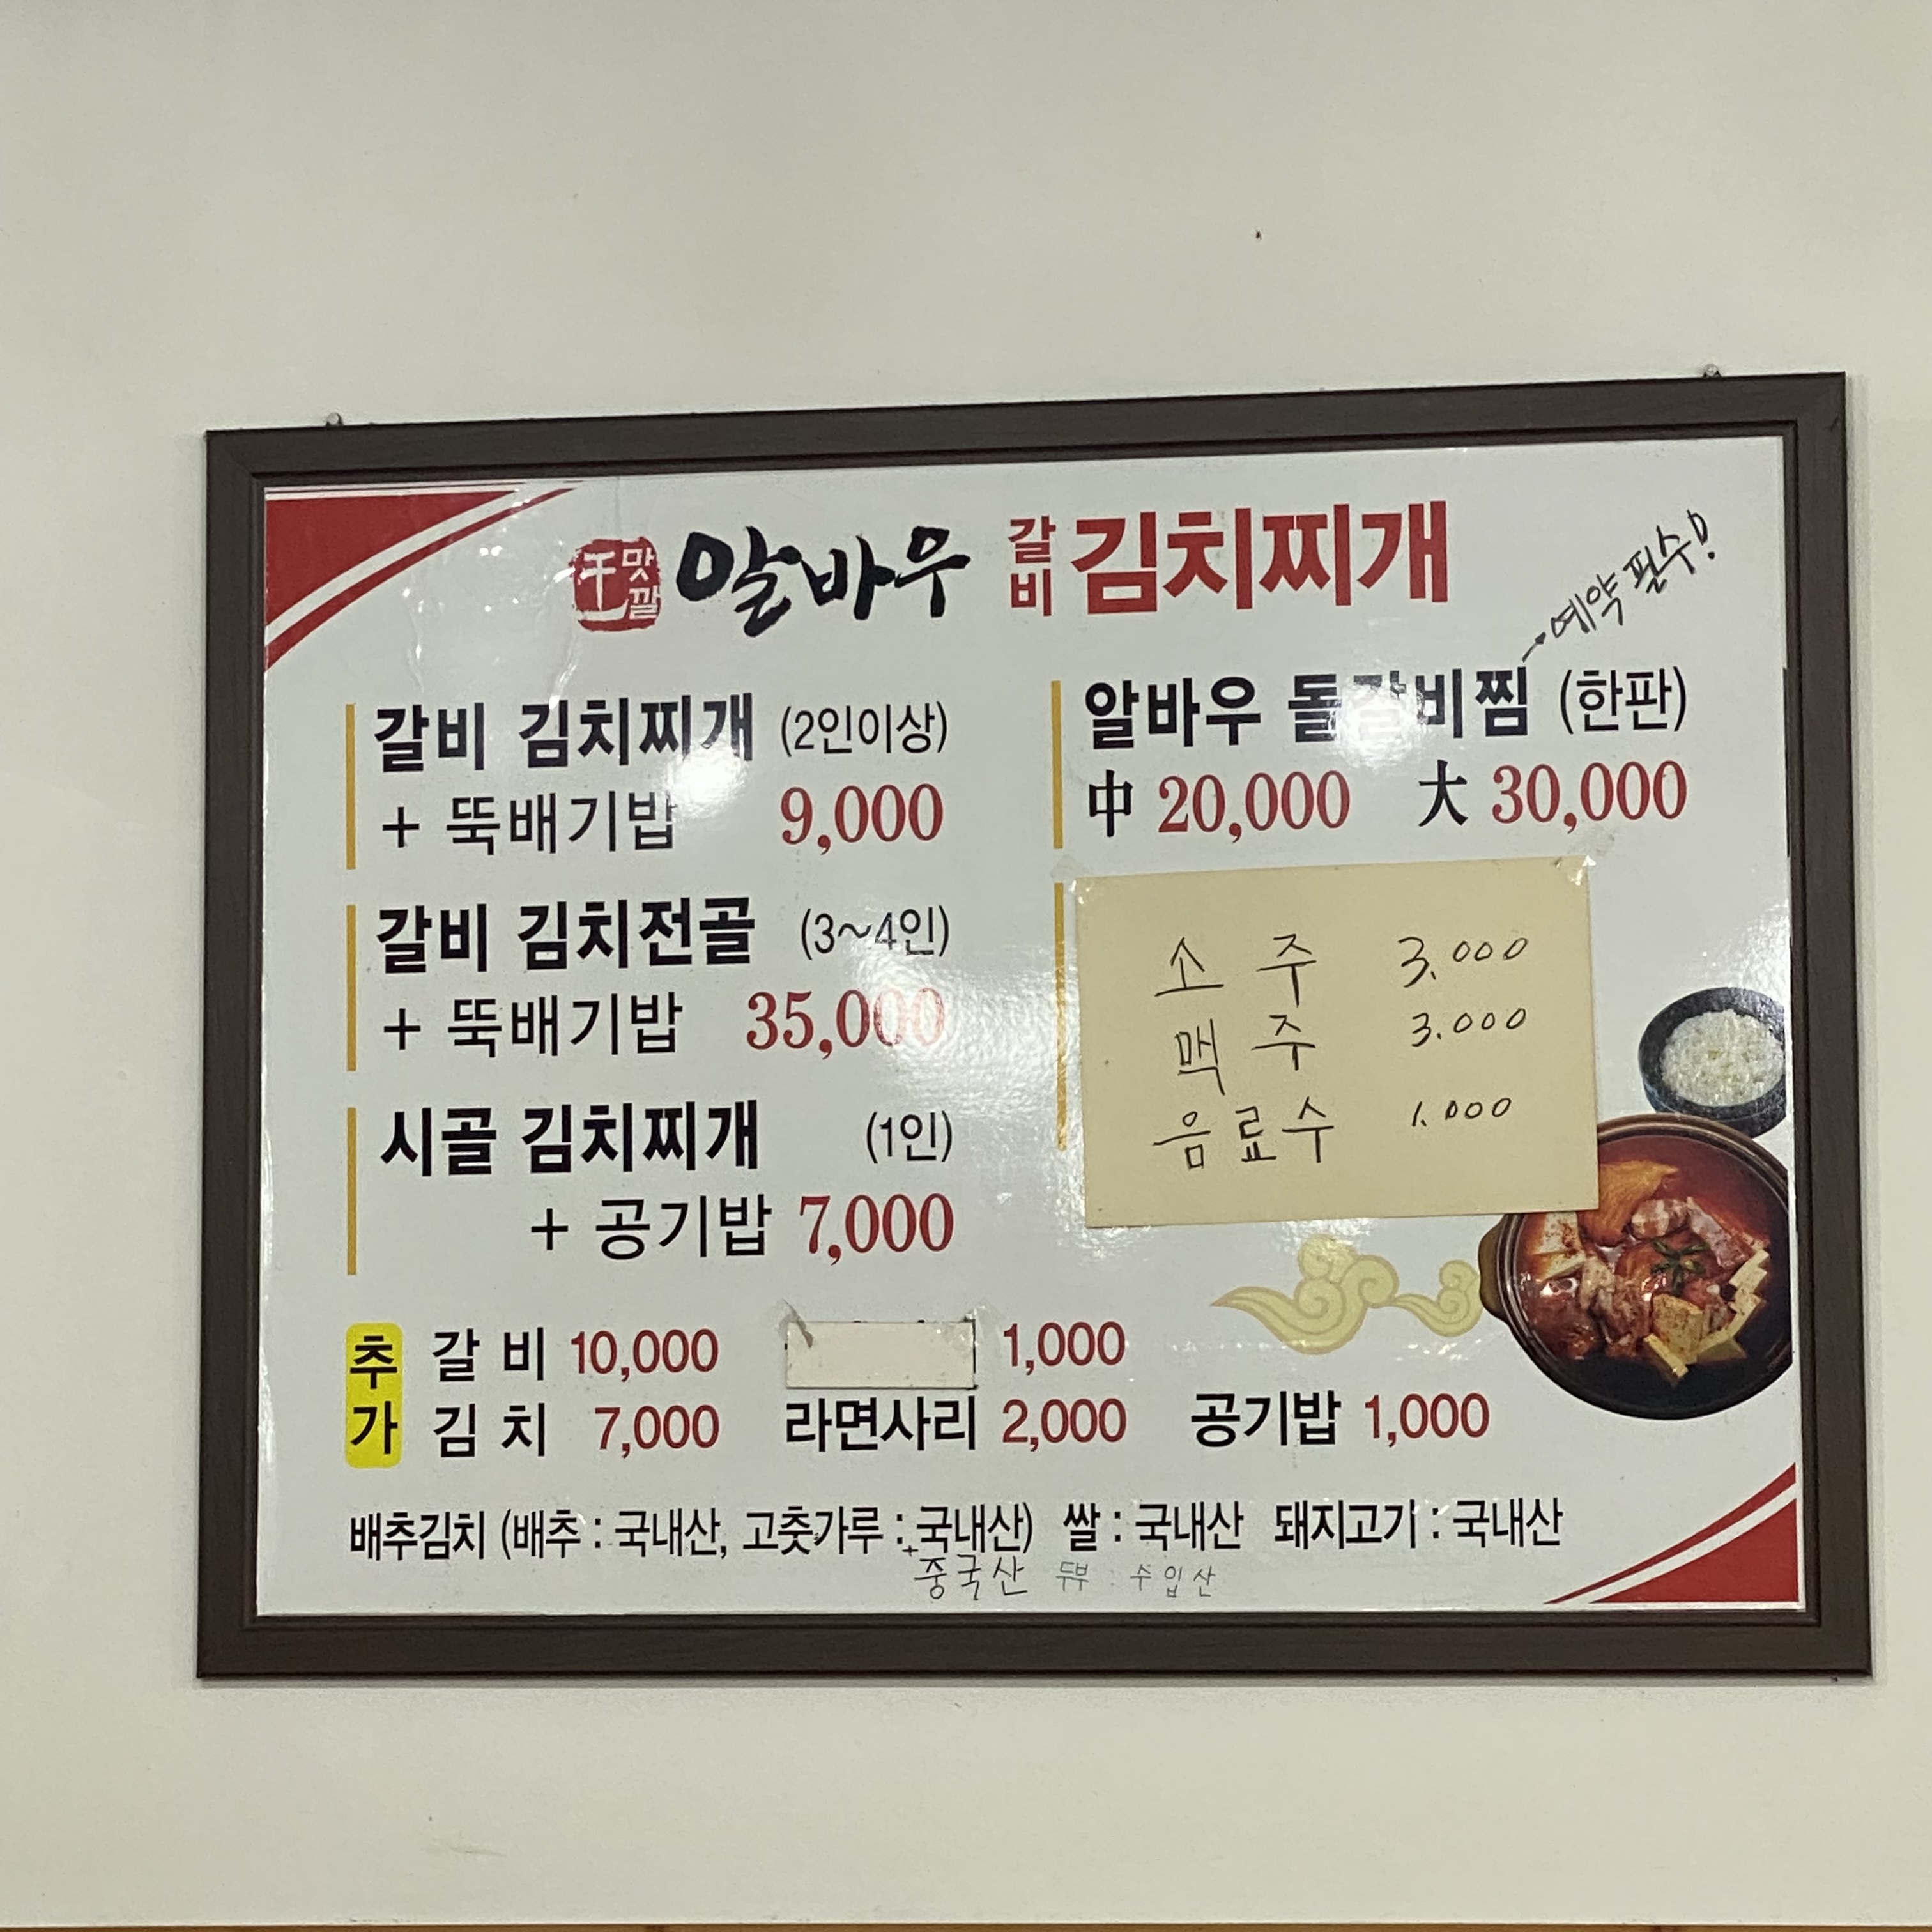 千 맛깔 알바우 갈비 김치찌개
예약 필수!
갈비 김치찌개 (2인이상)
+ 뚝배기밥 9,000
갈비 김치전골 (3~4인)
+ 뚝배기밥 35,000
시골 김치찌개 (1인)
+ 공기밥 7,000
알바우 돌갈비찜 (한판)
中 20,000 大 30,000
소주 3.000
맥주 3.000
음료수 1.000
추가
갈비 10,000 1,000
김치 7,000 라면사리 2,000 공기밥 1,000
배추김치 (배추 : 국내산, 고춧가루 : 국내산) 쌀 : 국내산 돼지고기 : 국내산
+중국산 두부 : 수입산